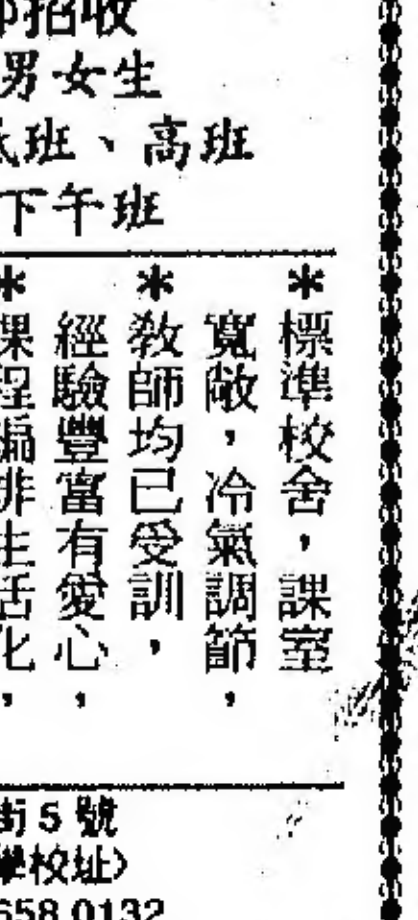 部招收
男女生
低班、高班
下午班
*標準校舍，課室
寬敞，冷氣調節，
*教師均已受訓，
經驗豐富有愛心，
*課程編排生活化，
街5號
學校址）
658 0132